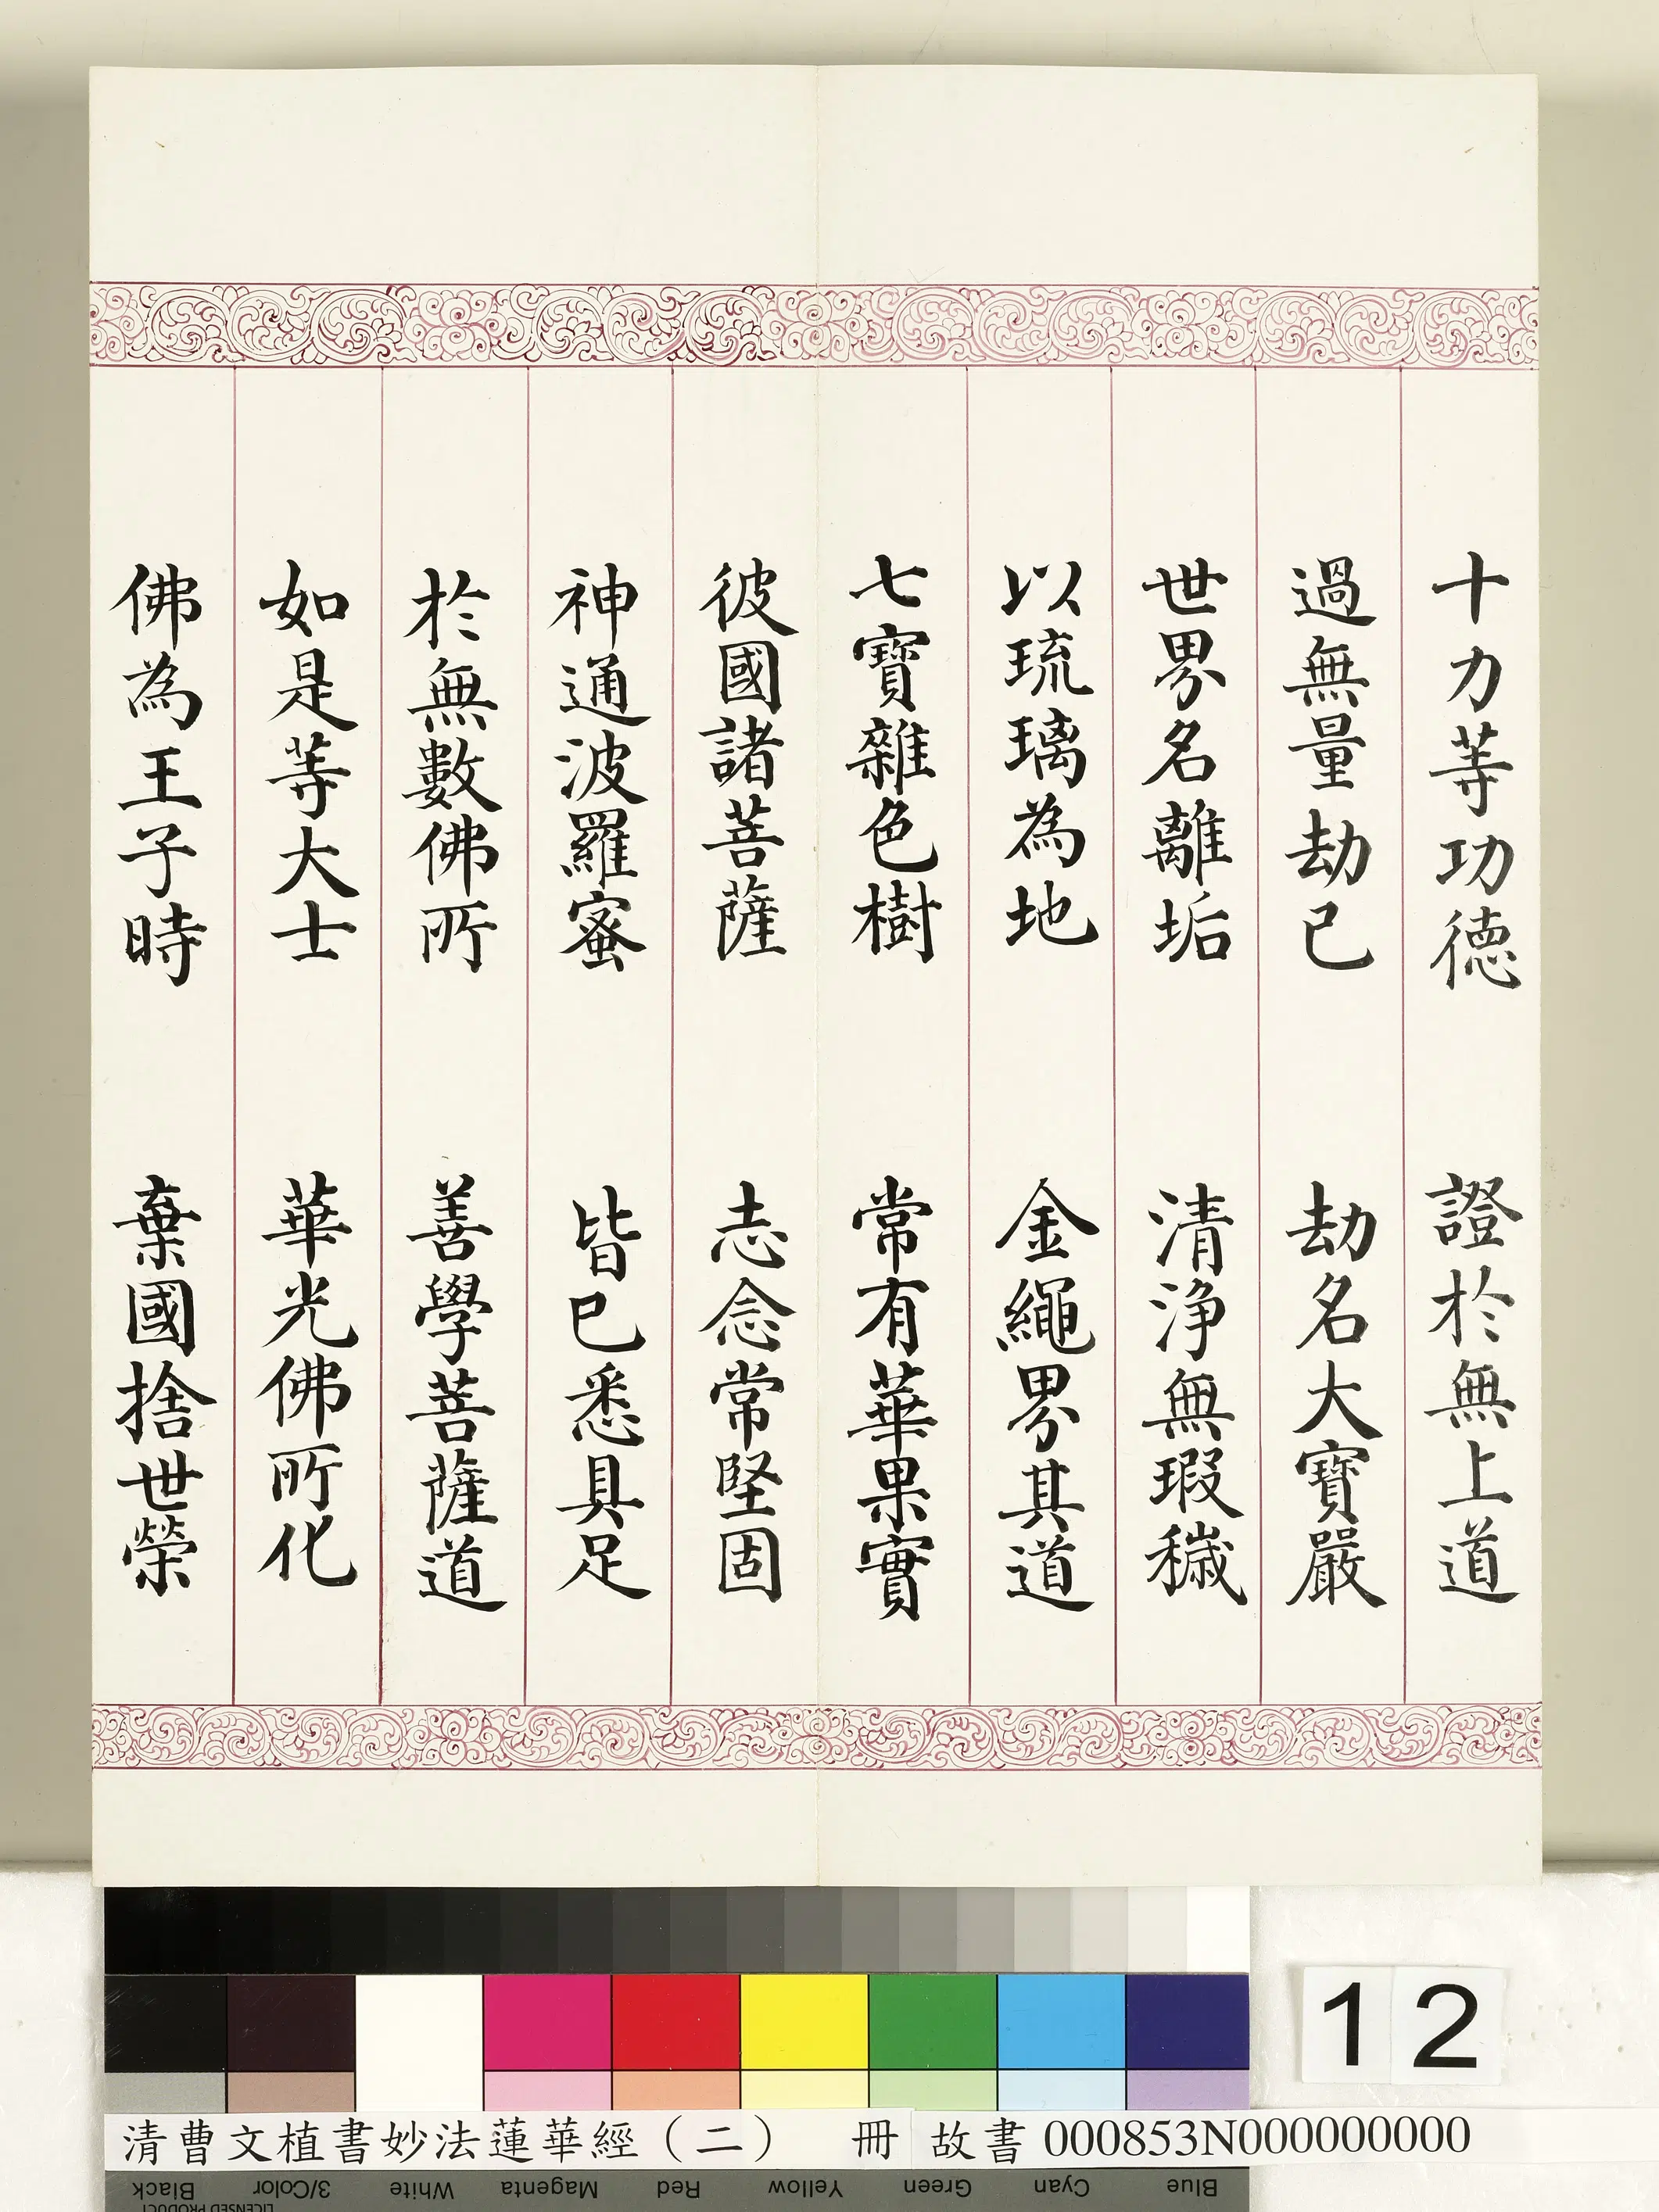 十力等功德 證於無上道
過無量劫已 劫名大寶嚴
世界名離垢 清淨無瑕穢
以琉璃為地 金繩界其道
七寶雜色樹 常有華果實
彼國諸菩薩 志念常堅固
神通波羅蜜 皆已悉具足
於無數佛所 善學菩薩道
如是等大士 華光佛所化
佛為王子時 棄國捨世榮
12
清曹文植書妙法蓮華經（二） 冊 故書000853N000000000
Black 3/Color White Magenta Red Yellow Green Cyan Blue
LICENSED PRODUCT